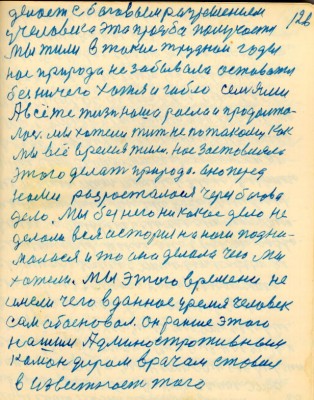 делает с боговым разрешением 126
у человека эта просьба получается
Мы жили в такие трудной годы
нас природа не забывала оставаться
без ничего хотя и гибло семьями
А всё же жизнь наша росла и продолжа-
лась. мы хотели жить не по такому как
мы всё время жили. нас заставляла
этого делать природа. она перед
нами разросталася через богова
дело. Мы без него никакое дело не
делали вся история на ноги подни-
малася и то она делала чего мы
хотели. Мы этого времени не
имели чего в данное время человек
сам обосновал. он раньше этого
нашим Административным
командирам врачам ставил
в известность этого